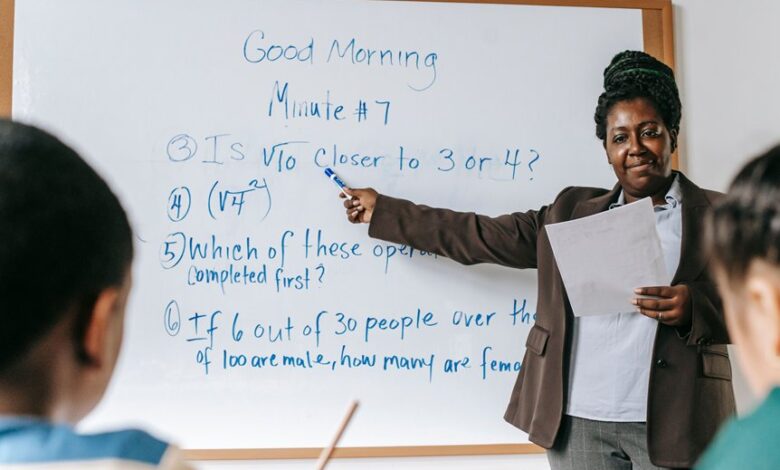 Good Morning
Minute #7
③ Is √10 Closer to 3 or 4?
④ (√4²)
⑤ Which of these
completed first?
⑥ If 6 out of 30 people over
of 100 are male, how many are